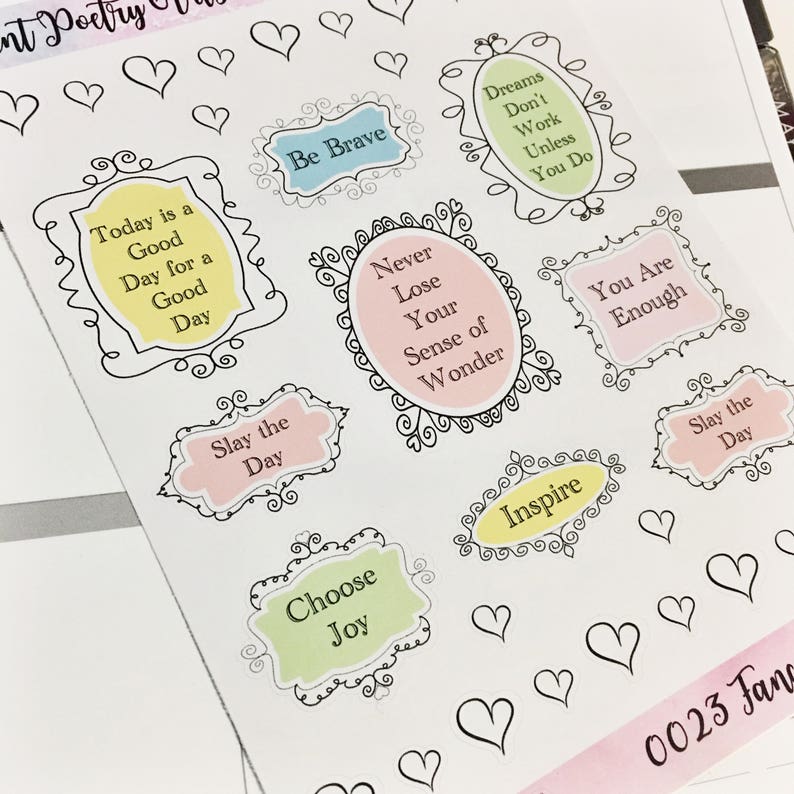 Poetry
Be Brave
Dreams
Don't
Work
Unless
You Do
Today is a
Good
Day for a
Good
Day
Never
Lose
Your
Sense of
Wonder
You Are
Enough
Slay the
Day
Slay the
Day
Inspire
Choose
Joy
0023